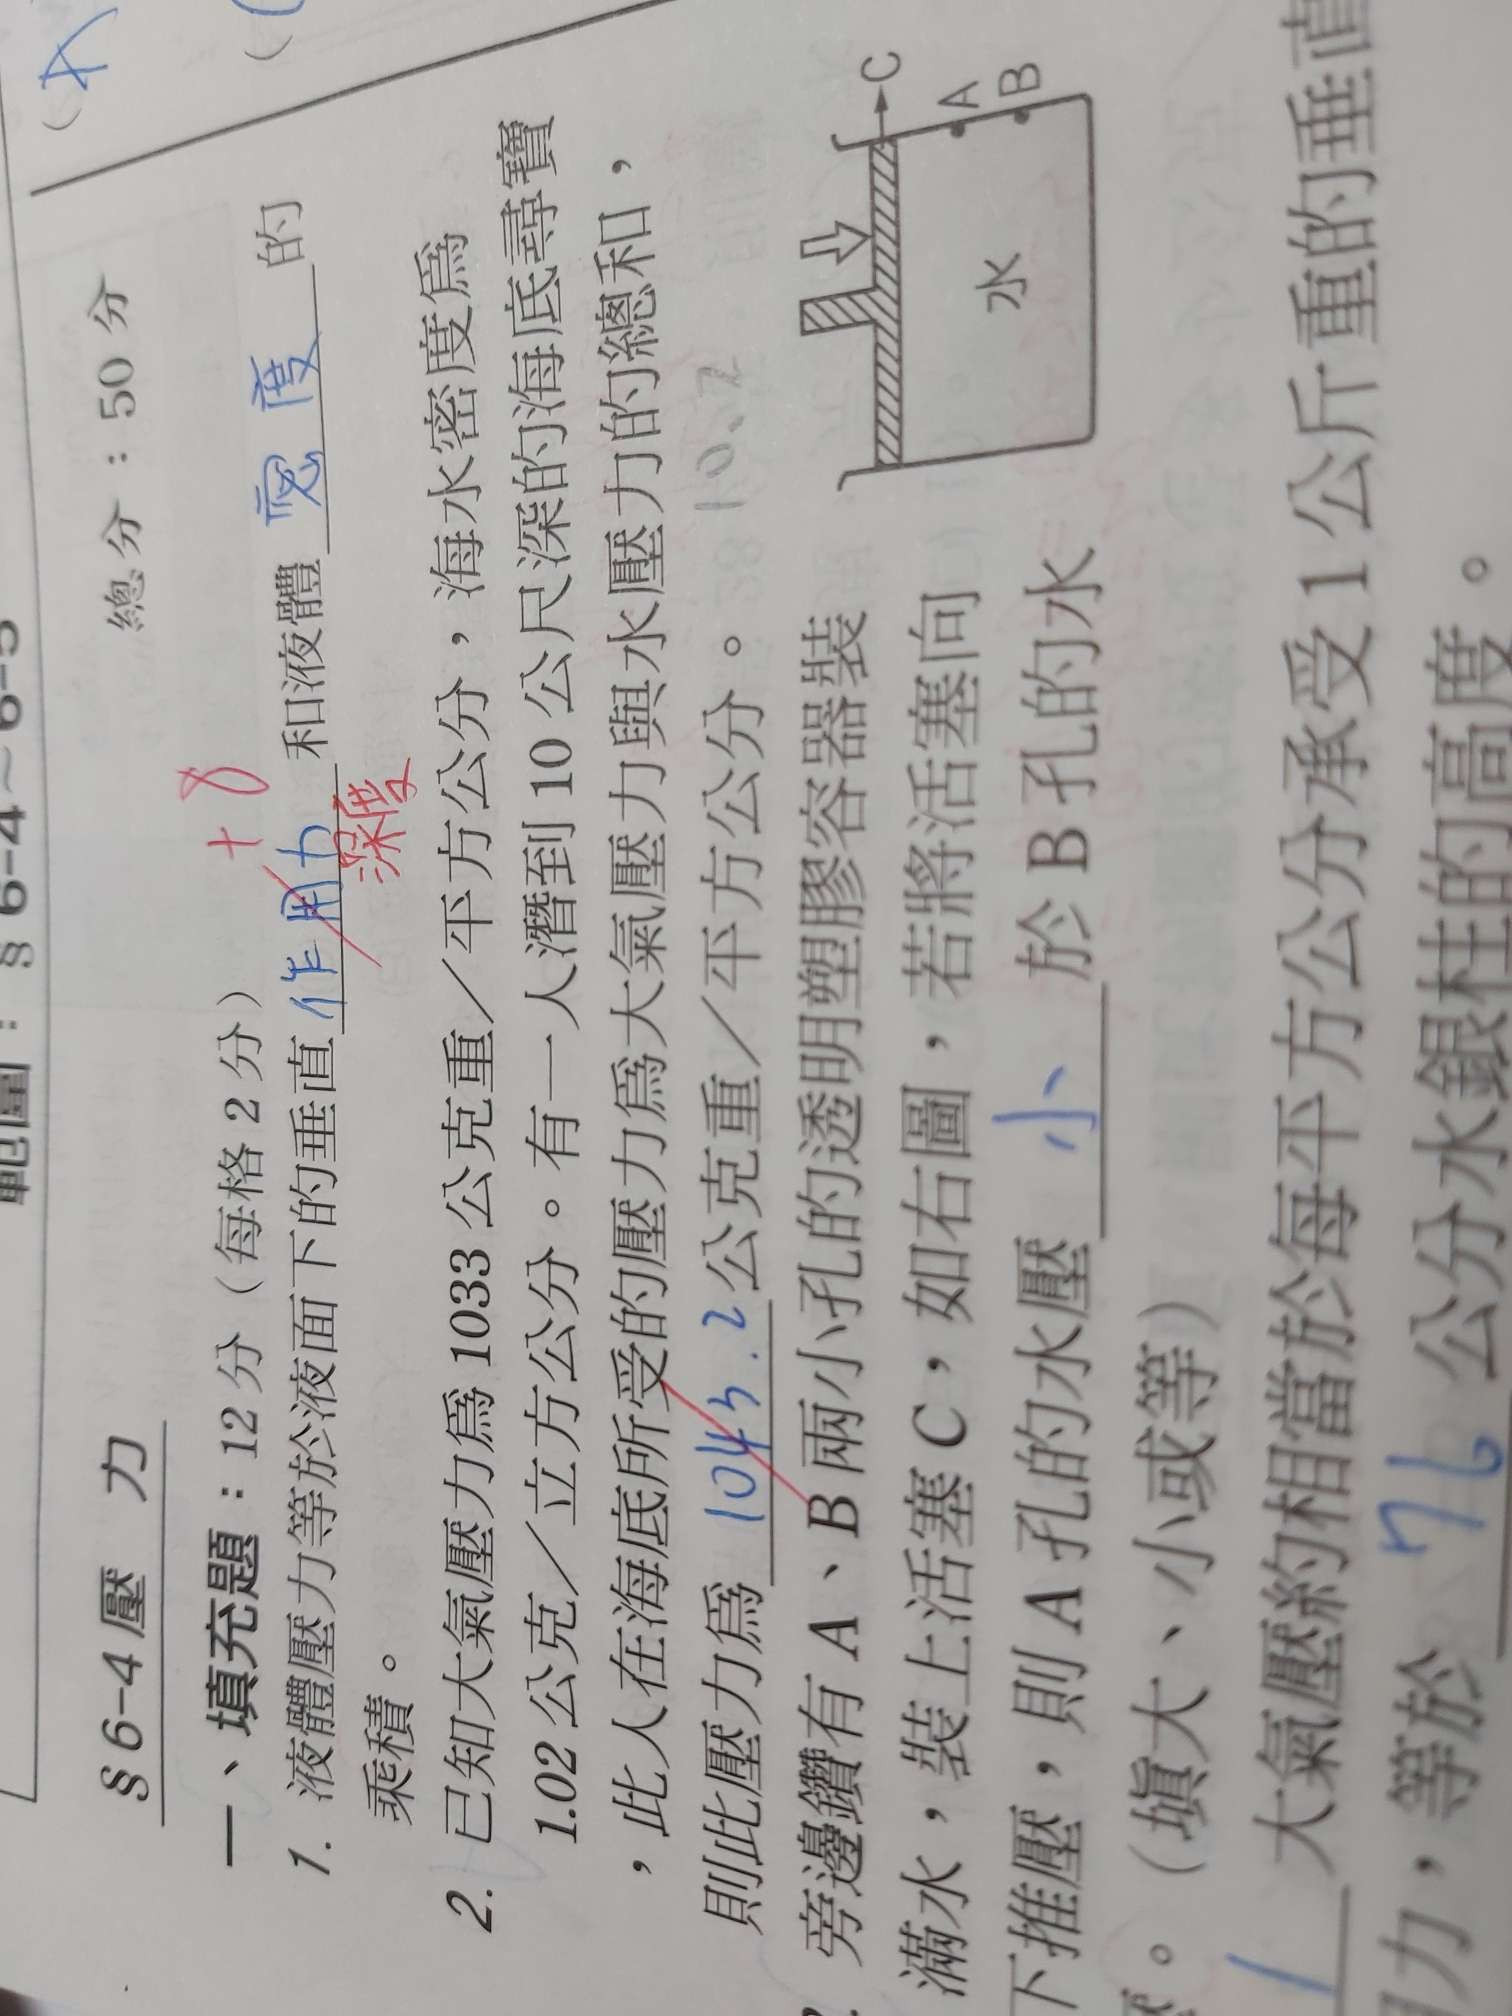 範圍：§6-4～6-5
總分：50分
§6-4 壓 力
一、填充題：12分（每格2分）
+8
1. 液體壓力等於液面下的垂直 作用力 和液體 密度 的
深度
乘積。
2. 已知大氣壓力為1033公克重／平方公分，海水密度為
1.02公克／立方公分。有一人潛到10公尺深的海底尋寶
，此人在海底所受的壓力為大氣壓力與水壓力的總和，
則此壓力為 1043.2 公克重／平方公分。
10.2
旁邊鑽有A、B兩小孔的透明塑膠容器裝
滿水，裝上活塞C，如右圖，若將活塞向
下推壓，則A孔的水壓 小 於B孔的水
壓。（填大、小或等）
C
A
B
水
1 大氣壓約相當於每平方公分承受1公斤重的垂直
力，等於 76 公分水銀柱的高度。